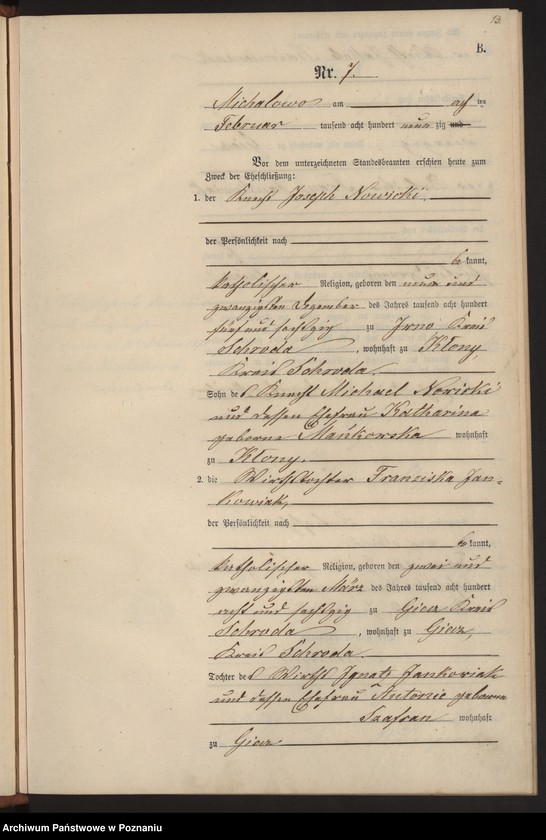 13.
B.
Nr. 7.
Michalowo am acht ten
Februar tausend acht hundert neun zig und
Vor dem unterzeichneten Standesbeamten erschien heute zum
Zweck der Eheschließung:
1. der Knecht Joseph Nowicki
der Persönlichkeit nach
be kannt,
katholischer Religion, geboren den neun und
zwanzigsten Dezember des Jahres tausend acht hundert
fünf und sechzig zu Kreis
Schroda, wohnhaft zu Kłony
Kreis Schroda.
Sohn des Knecht Michael Nowicki
und dessen Ehefrau Katharina
geborne Mańkowska wohnhaft
zu Kłony.
2. die Wirthstochter Franziska Jan-
kowiak,
der Persönlichkeit nach
be kannt,
katholischer Religion, geboren den zwei und
zwanzigsten März des Jahres tausend acht hundert
acht und sechzig zu Giecz Kreis
Schroda, wohnhaft zu Giecz,
Kreis Schroda.
Tochter des Wirths Ignatz Jankowiak
und dessen Ehefrau Antonie geborne
Szafran wohnhaft
zu Giecz
Archiwum Państwowe w Poznaniu